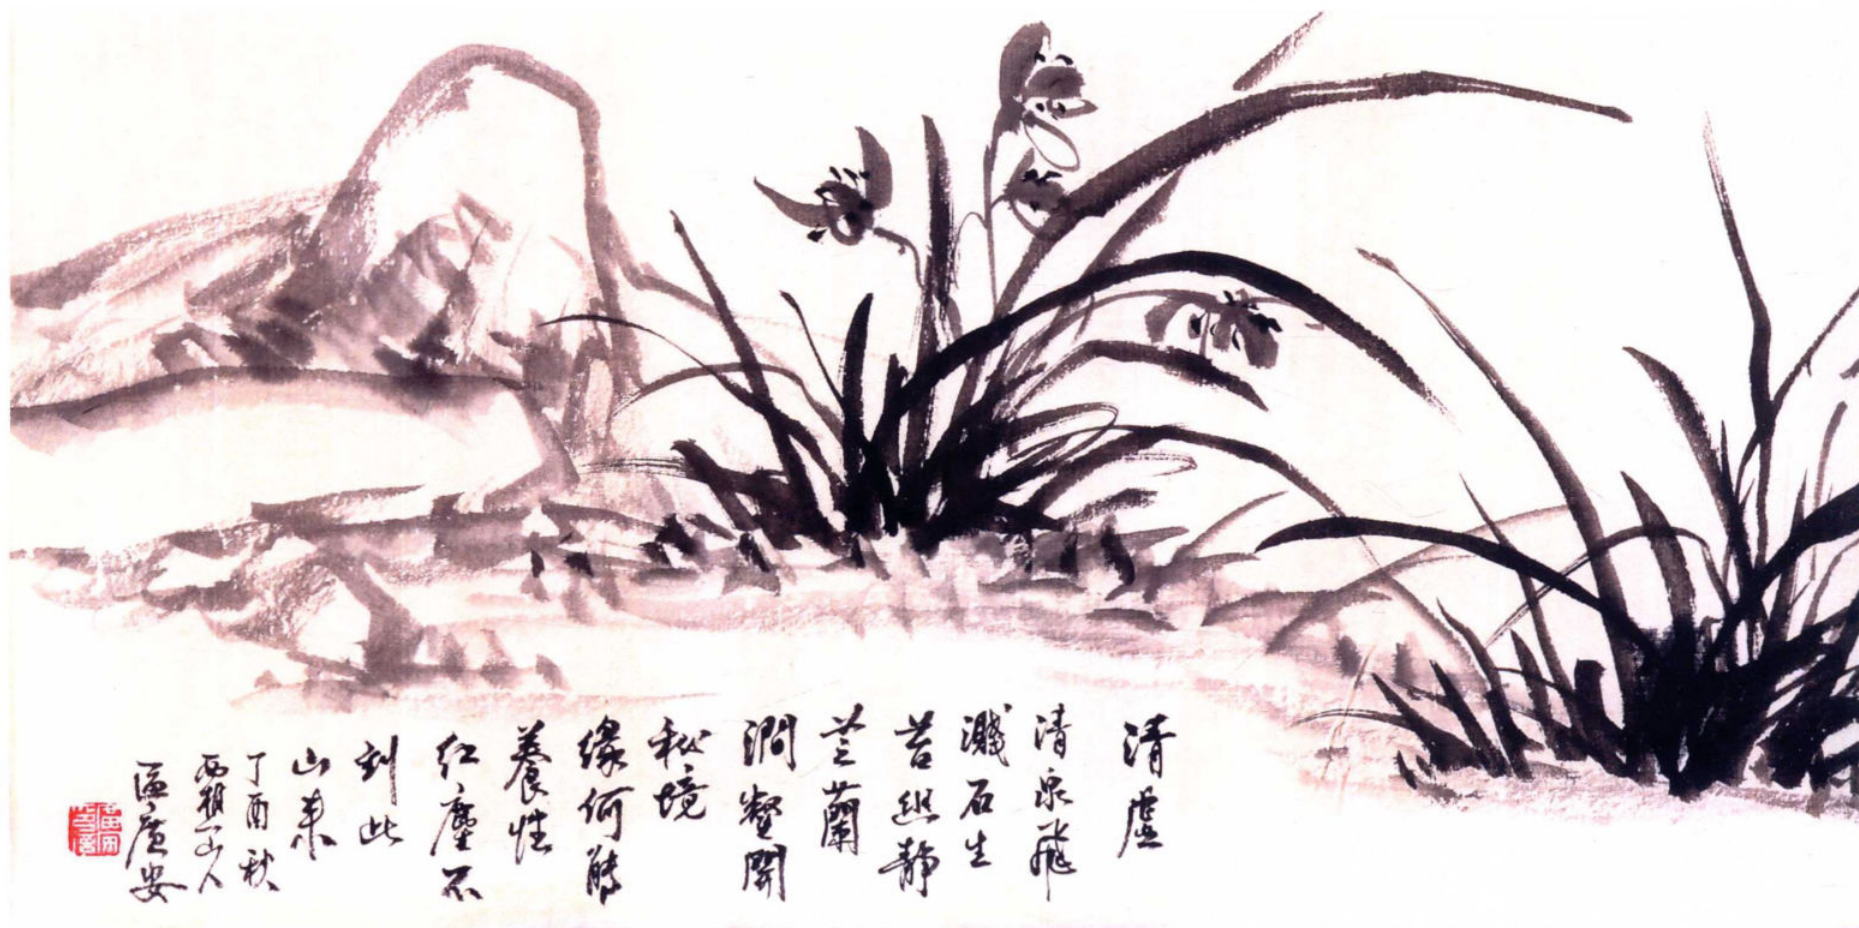 清虛
清泉飛
濺石生
苔幽靜
芝蘭
澗壑開
秘境
緣何能
養性
紅塵不
到此
山來
丁酉秋
西樵山人
區廣安